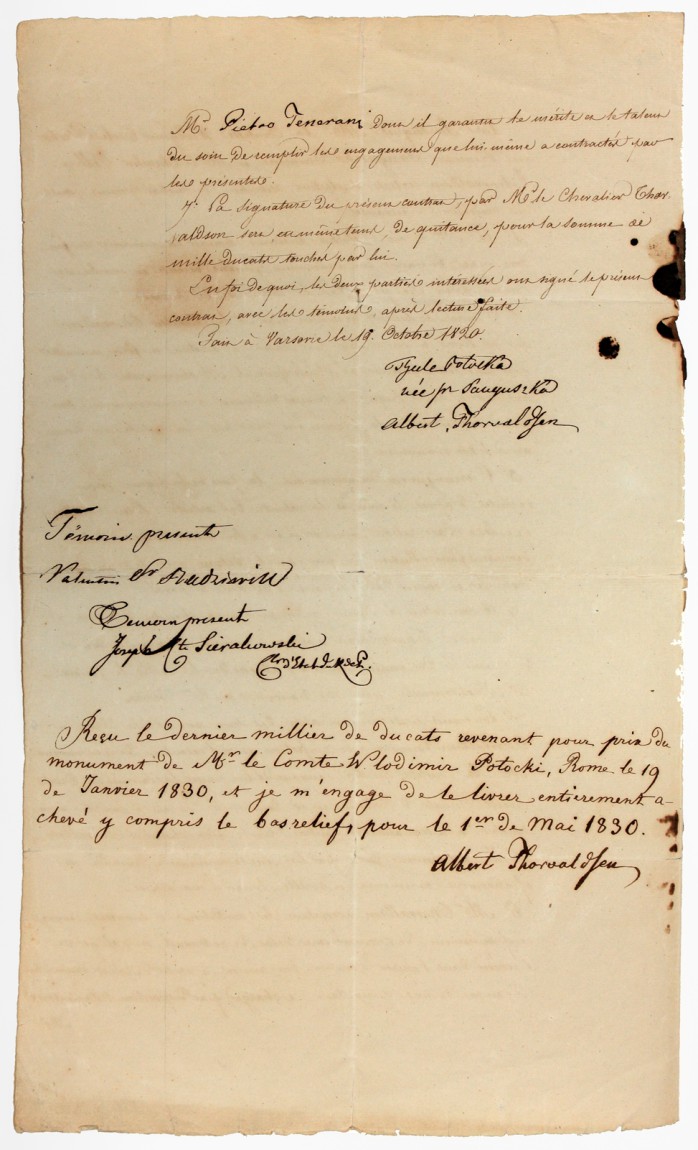 Mr. Pietro Tenerani dont il garantit le mérite et le talent
du soin de remplir les engagemens que lui même a contractés par
les présentes.
7. La signature du présent contrat, par Mr. le Chevalier Thor-
valdson sera, en même tems, de quitance, pour la somme de
mille ducats touchés par lui.
En foi de quoi, les deux parties interessées ont signé le présent
contrat, avec les témoins, après lecture faite.
Fait à Varsovie le 19. Octobre 1820.
Potocka
née pr Sanguszka
Albert Thorvaldsen
Témoin present
Valentin Pr Radziwill
Temoin present
Joseph Cte Sierakowski
Reçu le dernier millier de ducats revenant pour prix du
monument de Mr. le Comte Wlodimir Potocki, Rome le 19
de Janvier 1830, et je m'engage de le livrer entierement a-
chevé y compris le basrelief, pour le 1er de Mai 1830.
Albert Thorvaldsen